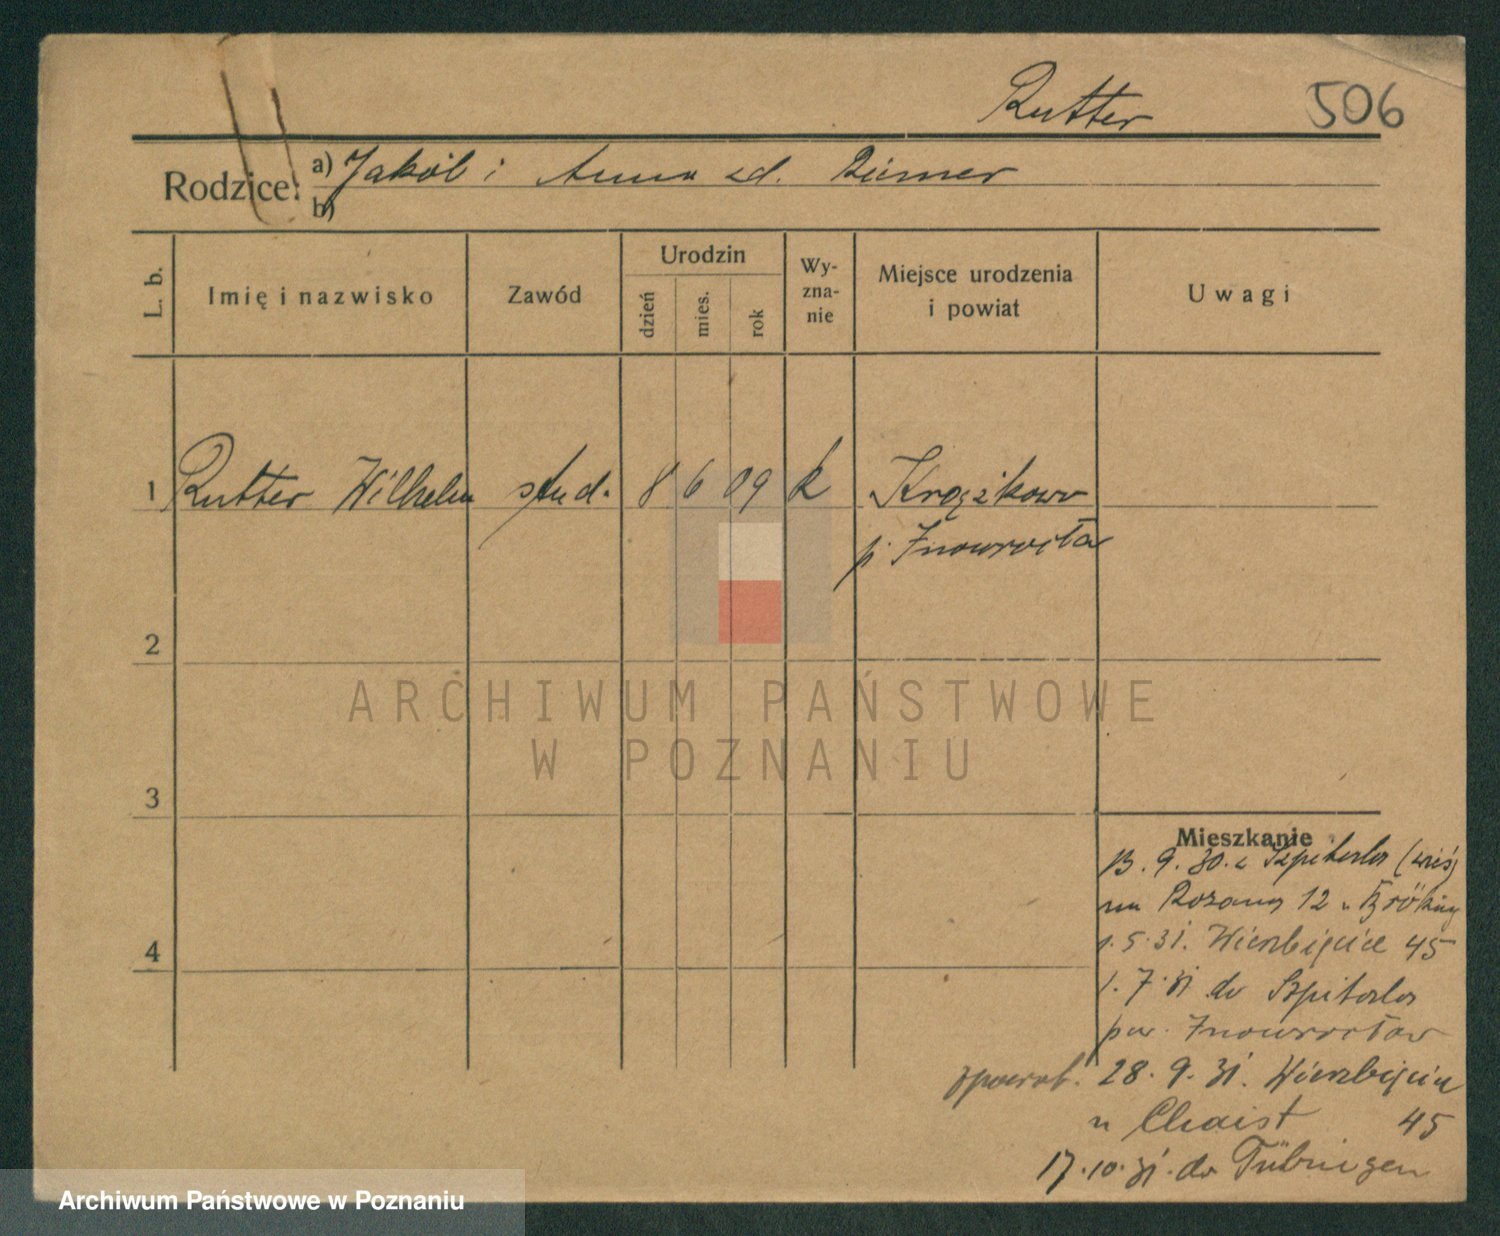 Rutter 506
Rodzice: a) Jakób i Anna zd. Riemer
b)
L. b.
Imię i nazwisko
Zawód
Urodzin
dzień
mies.
rok
Wy-
zna-
nie
Miejsce urodzenia
i powiat
Uwagi
1 Rutter Wilhelm stud. 8 6 09 k Krążkowo
p. Inowrocław
2
3
4
ARCHIWUM PAŃSTWOWE
W POZNANIU
Mieszkanie
13. 9. 30. z Szpital (wieś)
na Różaną 12 u
1. 5. 31. Wierzbięcice 45
1. 7. 31 do Szpital
pow. Inowrocław
zpowrot. 28. 9. 31. Wierzbięcice
u Chaist 45
17. 10. 31. do Tübingen
Archiwum Państwowe w Poznaniu